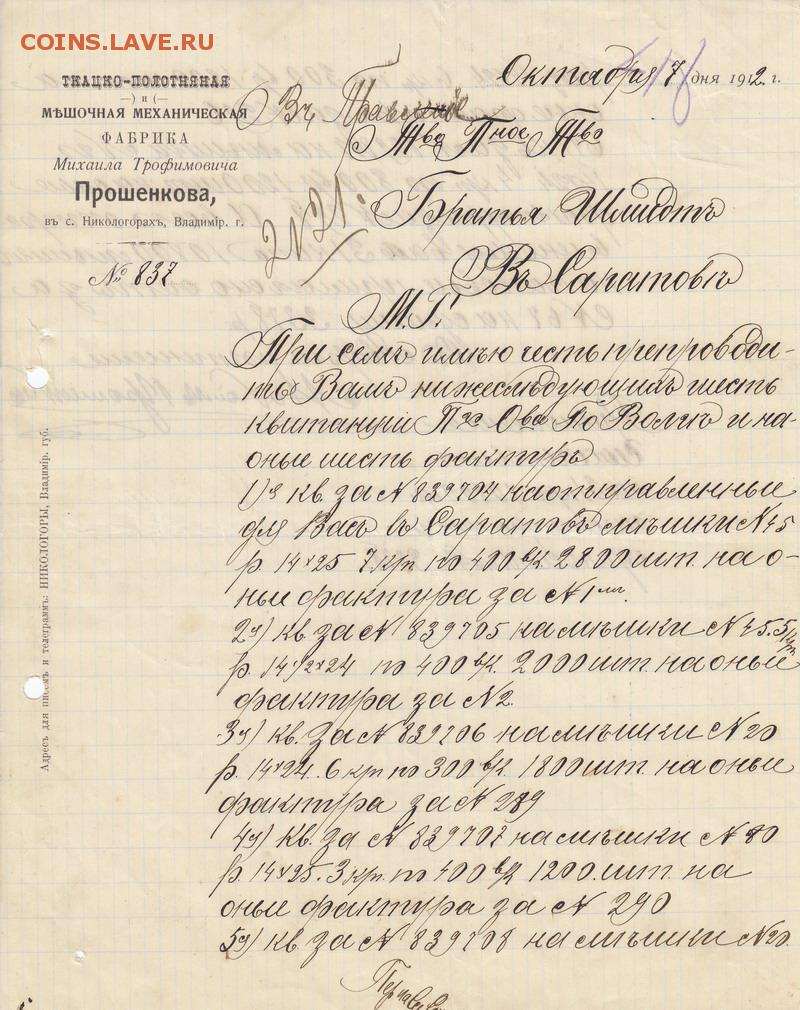 COINS.LAVE.RU
ТКАЦКО-ПОЛОТНЯНАЯ
—) и (—
МѢШОЧНАЯ МЕХАНИЧЕСКАЯ
ФАБРИКА
Михаила Трофимовича
Прошенкова,
въ с. Никологорахъ, Владимір. г.
№ 837
Октября 7 дня 1912 г.
Въ
Тво Пное Тво
Братья Шмидтъ
Въ Саратовѣ
2121.
М.Г!
При семъ имѣю честь препроводи-
ть Вамъ нижеслѣдующихъ шесть
квитанціи Пго Ова По Волгѣ и на-
оные шесть фактуръ
1) кв. за № 839704 на отправленные
для Васъ въ Саратовъ мѣшки № 45
р. 14х25 7 кр по 400 в/к. 2800 шт. на о-
ные фактура за № 1
2й) кв. за № 839705 на мѣшки № 45. 5 кр.
р. 14 1/2х24 по 400 в/к. 2000 шт. на оные
фактура за № 2.
3й) кв. за № 839706 на мѣшки № 20
р. 14х24. 6 кр по 300 в/к. 1800 шт. на оные
фактура за № 289
4й) кв. за № 839707 на мѣшки № 80
р. 14х25. 3 кр. по 400 в/к 1200. шт. на
оные фактура за № 290
5й) кв. за № 839708 на мѣшки № 20.
Адресъ для писемъ и телеграммъ: НИКОЛОГОРЫ, Владимір. губ.